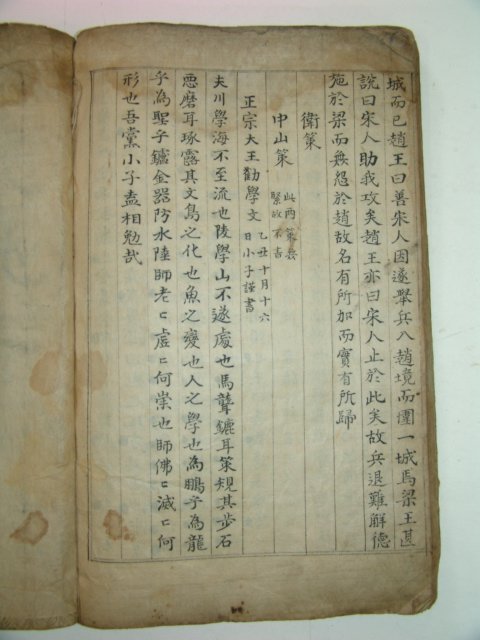 城而已趙王曰善宋人因遂擧兵入趙境而圍一城焉梁王甚
說曰宋人助我攻矣趙王亦曰宋人止於此矣故兵退難解德
施於梁而無怨於趙故名有所加而實有所歸
衛策
中山策 此兩策無
緊故不書
正宗大王勸學文 乙丑十月十六
日小子謹書
夫川學海不至流也陵學山不遂處也馬聾鑣耳策規其步石
悪磨耳琢露其文鳥之化也魚之變也人之學也為鵬乎為龍
乎為聖乎鑪金器防水陸師老〻虛〻何崇也師佛〻滅〻何
形也吾黨小子盍相勉哉